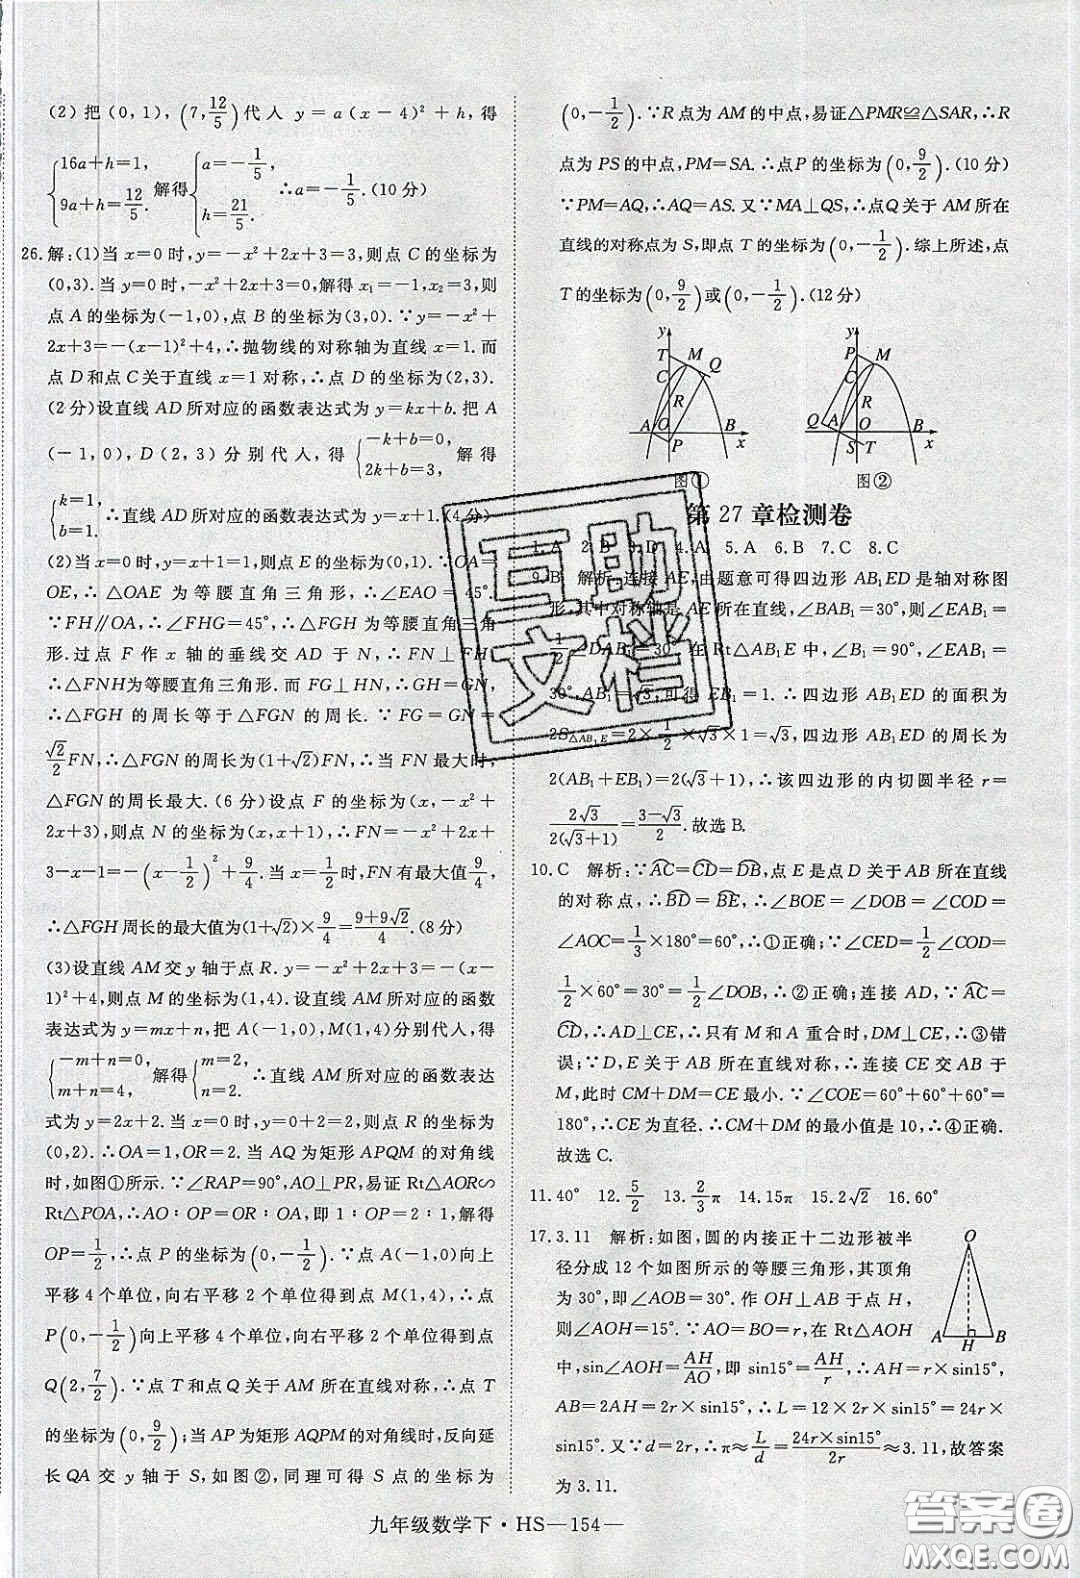 (2)把(0,1),(7,12/5)代入 y=a(x-4)²+h,得
{16a+h=1, 9a+h=12/5. 解得{a=-1/5, h=21/5. ∴a=-1/5.(10分)
26.解:(1)当x=0时,y=-x²+2x+3=3,则点C的坐标为
(0,3).当y=0时,-x²+2x+3=0,解得x₁=-1,x₂=3,则
点A的坐标为(-1,0),点B的坐标为(3,0).∵y=-x²+
2x+3=-(x-1)²+4,∴抛物线的对称轴为直线x=1.而
点D和点C关于直线x=1对称,∴点D的坐标为(2,3).
(2分)设直线AD所对应的函数表达式为y=kx+b.把A
(-1,0),D(2,3)分别代人,得{-k+b=0, 2k+b=3, 解得
{k=1, b=1. ∴直线AD所对应的函数表达式为y=x+1.(4分)
(2)当x=0时,y=x+1=1,则点E的坐标为(0,1).∵OA=
OE,∴△OAE为等腰直角三角形,∴∠EAO=45°.
∵FH∥OA,∴∠FHG=45°,∴△FGH为等腰直角三角
形.过点F作x轴的垂线交AD于N,∴FN⊥FH,
∴△FNH为等腰直角三角形.而FG⊥HN,∴GH=GN,
∴△FGH的周长等于△FGN的周长.∵FG=GN=
√2/2FN,∴△FGN的周长为(1+√2)FN,∴当FN最大时,
△FGN的周长最大.(6分)设点F的坐标为(x,-x²+
2x+3),则点N的坐标为(x,x+1),∴FN=-x²+2x+
3-x-1=-(x-1/2)²+9/4.当x=1/2时,FN有最大值9/4,
∴△FGH周长的最大值为(1+√2)×9/4=(9+9√2)/4.(8分)
(3)设直线AM交y轴于点R.∵y=-x²+2x+3=-(x-
1)²+4,则点M的坐标为(1,4).设直线AM所对应的函数
表达式为y=mx+n,把A(-1,0),M(1,4)分别代人,得
{-m+n=0, m+n=4, 解得{m=2, n=2. ∴直线AM所对应的函数表达
式为y=2x+2.当x=0时,y=0+2=2,则点R的坐标为
(0,2).∴OA=1,OR=2.当AQ为矩形APQM的对角线
时,如图①所示.∵∠RAP=90°,AO⊥PR,易证Rt△AOR∽
Rt△POA,∴AO∶OP=OR∶OA,即1∶OP=2∶1,解得
OP=1/2,∴点P的坐标为(0,-1/2).∵点A(-1,0)向上
平移4个单位,向右平移2个单位得到点M(1,4),∴点
P(0,-1/2)向上平移4个单位,向右平移2个单位得到点
Q(2,7/2).∵点T和点Q关于AM所在直线对称,∴点T
的坐标为(0,9/2);当AP为矩形AQPM的对角线时,反向延
长QA交y轴于S,如图②,同理可得S点的坐标为
(0,-1/2).∵R点为AM的中点,易证△PMR≌△SAR,∴R
点为PS的中点,PM=SA.∴点P的坐标为(0,9/2).(10分)
∵PM=AQ,∴AQ=AS.又∵MA⊥QS,∴点Q关于AM所在
直线的对称点为S,即点T的坐标为(0,-1/2).综上所述,点
T的坐标为(0,9/2)或(0,-1/2).(12分)
y T M Q C R A O B x P
图①
y P M C R Q A O B x S T
图②
第27章检测卷
1.A 2.B 3.D 4.A 5.A 6.B 7.C 8.C
9.B 解析:连接AE,由题意可得四边形AB₁ED是轴对称图
形,其中对称轴是AE所在直线,∠BAB₁=30°,则∠EAB₁=
1/2∠DAB₁=30°.在Rt△AB₁E中,∠B₁=90°,∠EAB₁=
30°,AB₁=√3,可得EB₁=1.∴四边形AB₁ED的面积为
2S△AB₁E=2×1/2×√3×1=√3,四边形AB₁ED的周长为
2(AB₁+EB₁)=2(√3+1),∴该四边形的内切圆半径r=
2√3/2(√3+1)=(3-√3)/2.故选B.
10.C 解析:∵AC=CD=DB,点E是点D关于AB所在直线
的对称点,∴BD=BE,∴∠BOE=∠DOB=∠COD=
∠AOC=1/3×180°=60°,∴①正确;∵∠CED=1/2∠COD=
1/2×60°=30°=1/2∠DOB,∴②正确;连接AD,∵AC=
CD,∴AD⊥CE,∴只有M和A重合时,DM⊥CE,∴③错
误;∵D,E关于AB所在直线对称,∴连接CE交AB于
M,此时CM+DM=CE最短.∵∠COE=60°+60°+60°=
180°,∴CE为直径,∴CM+DM的最小值是10,∴④正确.
故选C.
11.40° 12.5/2 13.2/3π 14.15π 15.2√2 16.60°
17.3.11 解析:如图,圆的内接正十二边形被半
径分成12个如图所示的等腰三角形,其顶角
为30°,即∠AOB=30°.作OH⊥AB于点H,
则∠AOH=15°.∵AO=BO=r,在Rt△AOH
中,sin∠AOH=AH/AO,即sin15°=AH/r,∴AH=r×sin15°,
AB=2AH=2r×sin15°,∴L=12×2r×sin15°=24r×
sin15°.又∵d=2r,∴π≈L/d=24r×sin15°/2r≈3.11,故答案
为3.11.
O A H B
九年级数学下·HS—154—
互助文档
答案圈
MXQE.COM